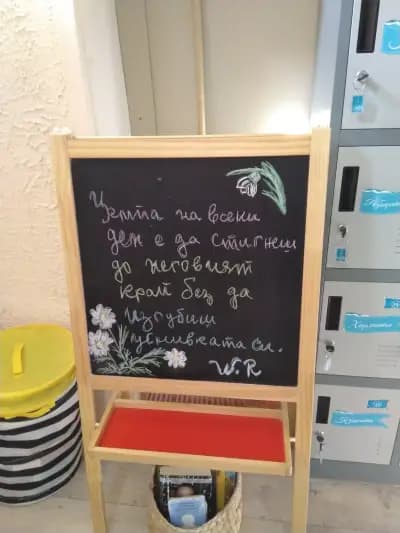 Целта на всеки
ден е да стигнеш
до неговият
край без да
изгубиш
усмивката си.
W.R